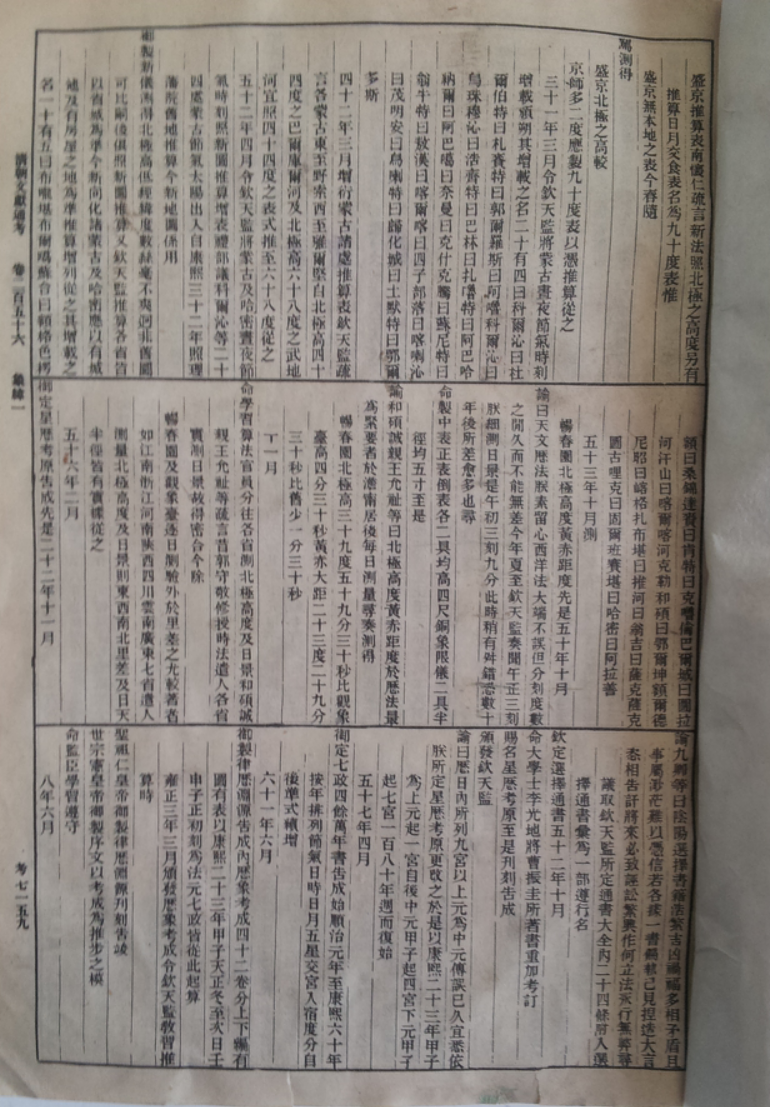 盛京推算表南懷仁疏言新法照北極之高度另有
推算日月交食表名為九十度表惟
盛京無本地之表今春隨
駕測得
盛京北極之高較
京師多二度應製九十度表以憑推算從之
三十一年三月令欽天監將蒙古晝夜節氣時刻
增載頒朔其增載之名二十有四曰科爾沁曰杜
爾伯特曰札賚特曰郭爾羅斯曰阿嚕科爾沁曰
烏珠穆沁曰浩齊特曰巴林曰扎嚕特曰阿巴哈
納爾曰阿巴噶曰奈曼曰克什克騰曰蘇尼特曰
翁牛特曰敖漢曰喀爾喀曰四子部落曰喀喇沁
曰茂明安曰烏喇特曰歸化城曰土默特曰鄂爾
多斯
四十二年三月增衍蒙古諸處推算表欽天監疏
言各蒙古東至野索西至雅爾堅自北極高四十
四度之巴爾庫爾河及北極高六十八度之武地
河宜照四十四度之表式推至六十八度從之
五十二年四月令欽天監將蒙古及哈密晝夜節
氣時刻照新圖推算增表禮部議科爾沁等二十
四處蒙古節氣太陽出入自康熙三十二年照理
藩院舊地推算今新地圖係用
御製新儀測得北極高低經緯度數絲毫不爽迥非舊圖
可比嗣後俱照新圖推算又欽天監推算各省皆
以省城為準今新向化諸蒙古及哈密應以有城
池及有房屋之地為準推算增列從之其增載之
名一十有五曰布嚨堪布爾噶蘇台曰額格色楞
額曰桑錦達賚曰肯特曰克嚕倫巴爾城曰圖拉
河汗山曰喀爾喀河克勒和碩曰鄂爾坤額爾德
尼昭曰崆格扎布堪曰推河曰翁吉曰薩克薩克
圖古哩克曰固爾班賽堪曰哈密曰阿拉善
五十三年十月測
暢春園北極高度黃赤距度先是五十年十月
諭曰天文曆法朕素留心西洋法大端不誤但分刻度數
之間久而不能無差今年夏至欽天監奏聞午正三刻
朕細測日景是午初三刻九分此時稍有舛錯恐數十
年後所差愈多也尋
命製中表正表倒表各二具均高四尺銅象限儀二具半
徑均五寸至是
諭和碩誠親王允祉等曰北極高度黃赤距度於曆法最
為緊要著於澹甯居後每日測量尋奏測得
暢春園北極高三十九度五十九分三十秒比觀象
臺高四分三十秒黃赤大距二十三度二十九分
三十秒比舊少一分三十秒
十一月
命學習算法官員分往各省測北極高度及日景和碩誠
親王允祉等疏言昔郭守敬修授時法遣人各省
實測日景故得密合今除
暢春園及觀象臺逐日測驗外於里差之尤較著者
如江南浙江河南陝西四川雲南廣東七省遣人
測量北極高度及日景則東西南北里差及日天
半徑皆有實據從之
五十六年二月
御定星曆考原告成先是二十二年十一月
諭九卿等曰陰陽選擇書籍浩繁吉凶禍福多相矛盾且
事屬渺茫難以憑信若各採一書偏執己見捏造大言
恣相告訐將來必致誣訟繁興作何立法永行無弊尋
議取欽天監所定通書大全內二十四條附入選
擇通書彙為一部遵行名
欽定選擇通書五十二年十月
命大學士李光地將曹振圭所著書重加考訂
賜名星曆考原至是刊刻告成
頒發欽天監
諭曰曆日內所列九宮以上元為中元傳誤已久宜悉依
朕所定星曆考原更改之於是以康熙二十三年甲子
為上元起一宮自後中元甲子起四宮下元甲子
起七宮一百八十年週而復始
五十七年四月
御定七政四餘萬年書告成始順治元年至康熙六十年
按年排列節氣日時日月五星交宮入宿度分自
後準式續增
六十一年六月
御製律曆淵源告成內曆象考成四十二卷分上下編有
圖有表以康熙二十三年甲子天正冬至次日壬
申子正初刻為法元七政皆從此起算
雍正三年三月頒發曆象考成令欽天監敎習推
算時
聖祖仁皇帝御製律曆淵源刊刻告竣
世宗憲皇帝御製序文以考成為推步之模
命監臣學習遵守
八年六月
清朝文獻通考 卷二百五十六 象緯一
考七一五九